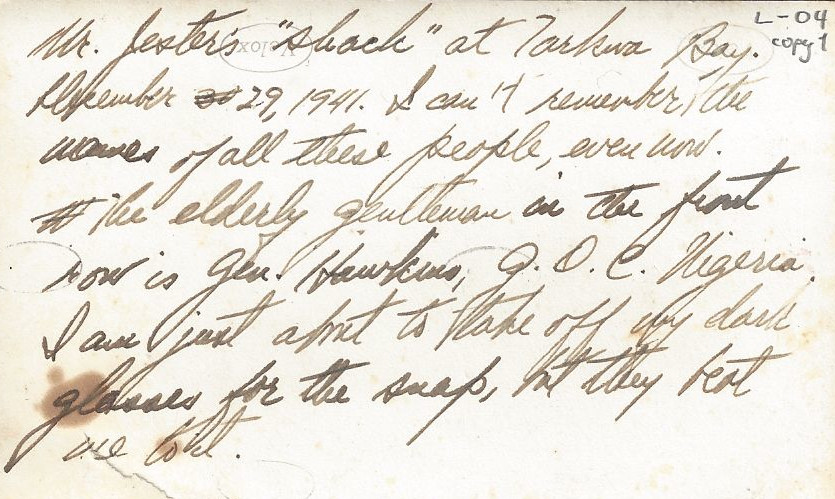 L-04
copy 1
Mr. Jester's "shack" at Tarkwa Bay.
December 29, 1941. I can't remember the
names of all these people, even now.
The elderly gentleman in the front
row is Gen. Hawkins, G.O.C. Nigeria.
I am just about to take off my dark
glasses for the snap, but they beat
me to it.
Velox